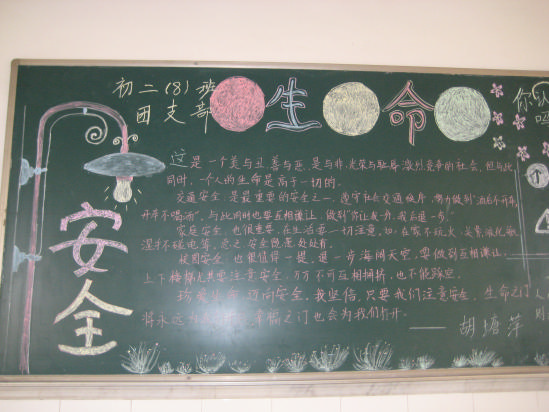 初二(8)班
团支部
生命
安全
这是一个美与丑、善与恶、是与非、光荣与耻辱、激烈竞争的社会,但与此
同时,一个人的生命是高于一切的。
交通安全,是最重要的安全之一,遵守社会交通秩序,努力做到"酒后不开车,
开车不喝酒",与此同时也要互相谦让,做到"你让我一步,我后退一步。"
家庭安全,也很重要,在生活要一切注意,如:在家不玩火,
湿手不碰电等,总之安全隐患处处有。
校园安全,也很值得一提,退一步海阔天空,要做到互相谦让,
上下楼梯尤其要注意安全,万万不可互相拥挤,也不能踩空。
珍爱生命,迈向安全,我坚信,只要我们注意安全,生命之门
将永远为 幸福之门也会为我们打开。
——胡塘萍
你认